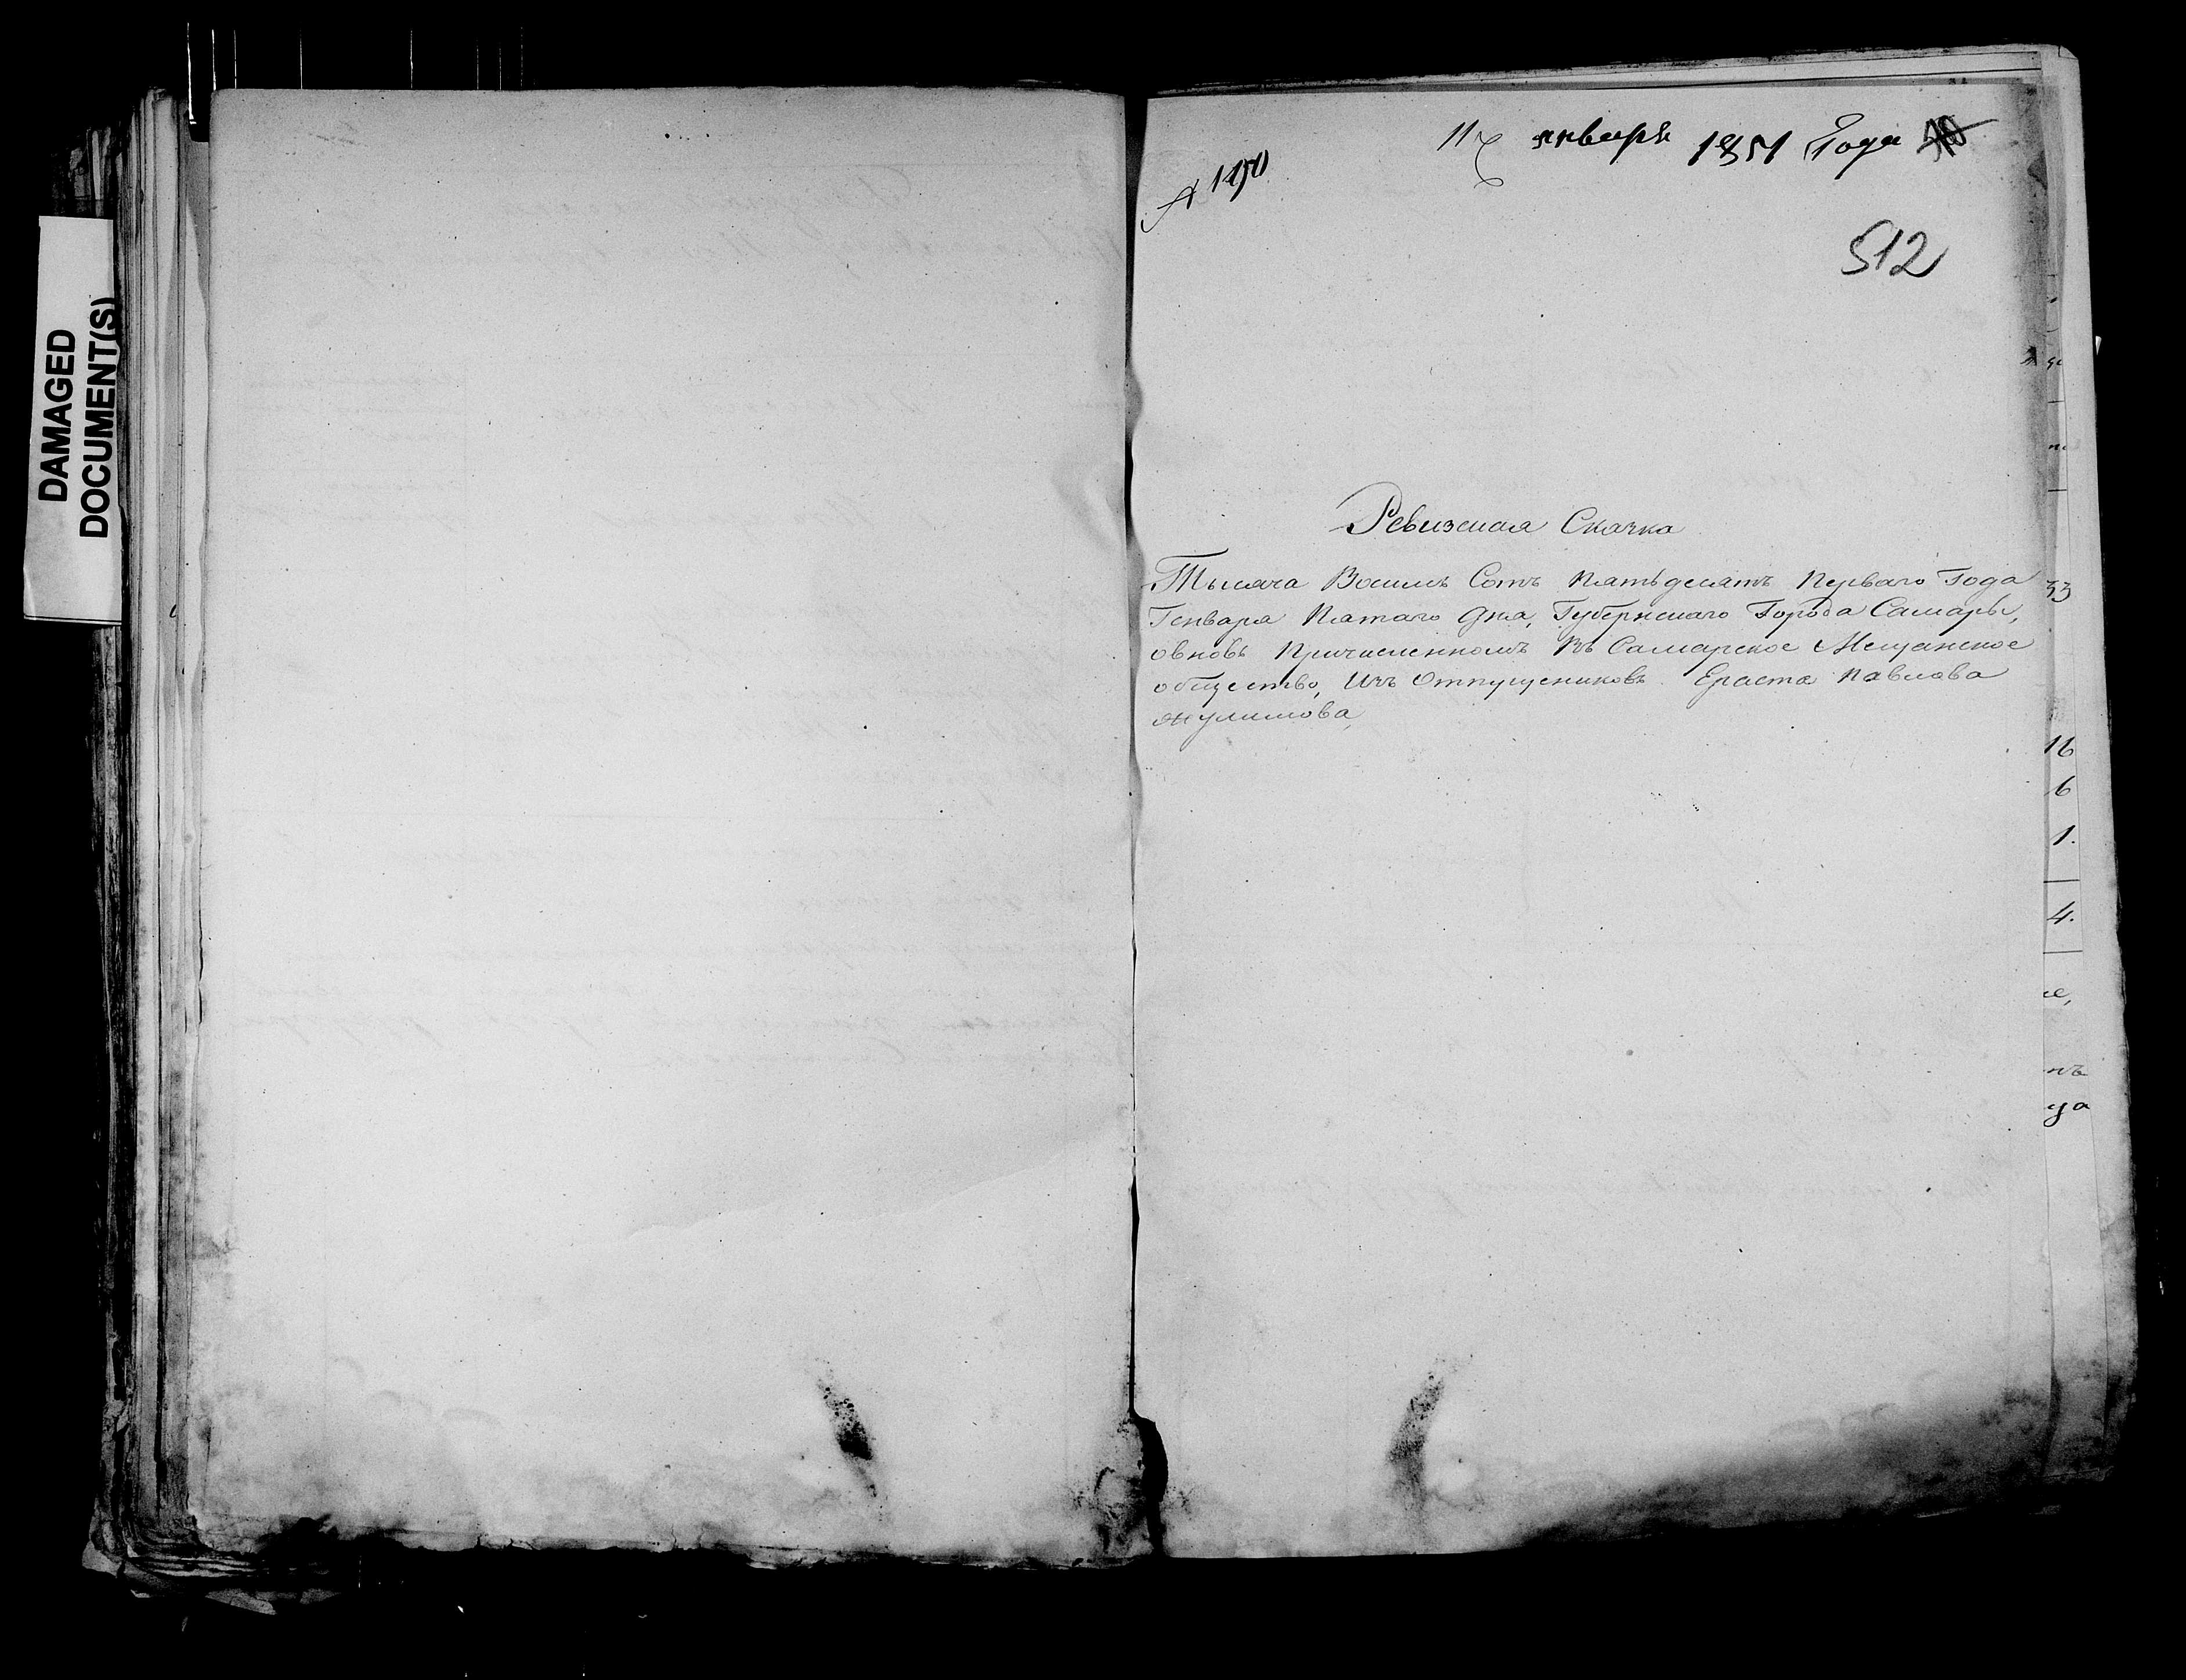 DAMAGED
DOCUMENT(S)
11 января 1851 Года
№ 1190
512
Ревизская Скачка
Тысяча Восимь Сотъ Пятьдесятъ Перваго Года
Генваря Пятаго Дня, Губернскаго Города Самары,
овновь Причисленномъ Въ Самарское Мещанское
общество, Изъ Отпущениковъ Ераста Павлова
33
16
6
1.
4.